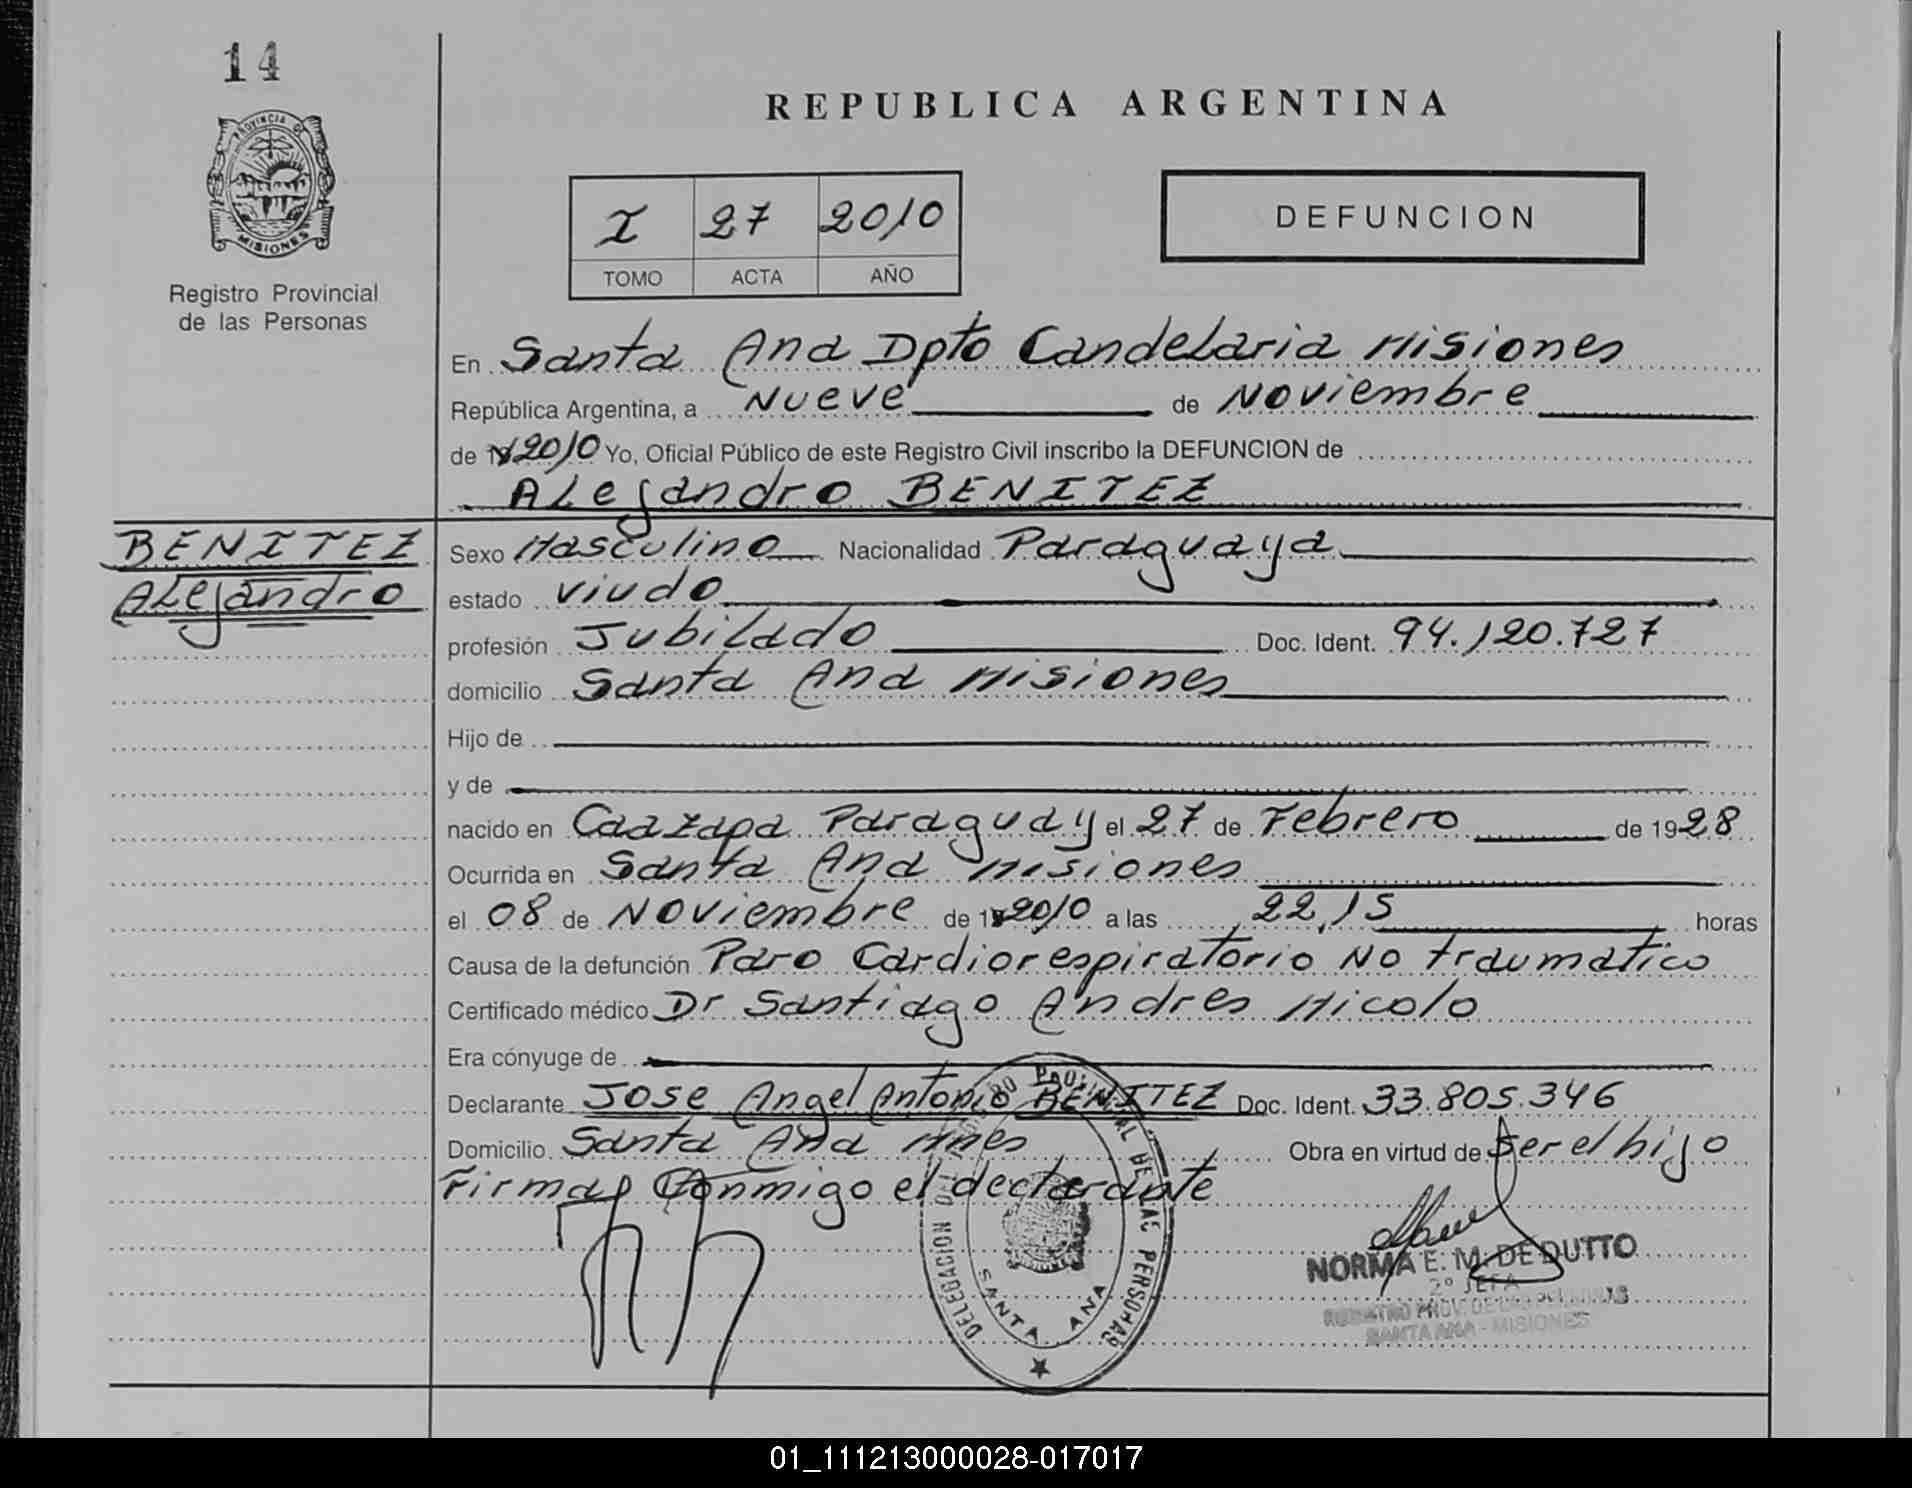 14
REPUBLICA ARGENTINA
PROVINCIA DE
MISIONES
Registro Provincial
de las Personas
I 27 2010
TOMO ACTA AÑO
DEFUNCION
En Santa Ana Dpto Candelaria Misiones
República Argentina, a Nueve de Noviembre
de 2010 Yo, Oficial Público de este Registro Civil inscribo la DEFUNCION de
Alejandro BENITEZ
BENITEZ
Alejandro
Sexo Masculino Nacionalidad Paraguaya
estado Viudo
profesión Jubilado Doc. Ident. 94.120.727
domicilio Santa Ana Misiones
Hijo de
y de
nacido en Caazapa Paraguay el 27 de Febrero de 1928
Ocurrida en Santa Ana Misiones
el 08 de Noviembre de 2010 a las 22,15 horas
Causa de la defunción Paro Cardiorespiratorio No traumatico
Certificado médico Dr Santiago Andres Nicolo
Era cónyuge de
Declarante Jose Angel Antonio BENITEZ Doc. Ident. 33.805.346
Domicilio Santa Ana Mnes Obra en virtud de ser el hijo
Firma Conmigo el declarante
DELEGACION DEL REGISTRO PROVINCIAL DE LAS PERSONAS
SANTA ANA
NORMA E. M. DE DUTTO
2º JEFA
REGISTRO PROV. DE LAS PERSONAS
SANTA ANA - MISIONES
01_111213000028-017017